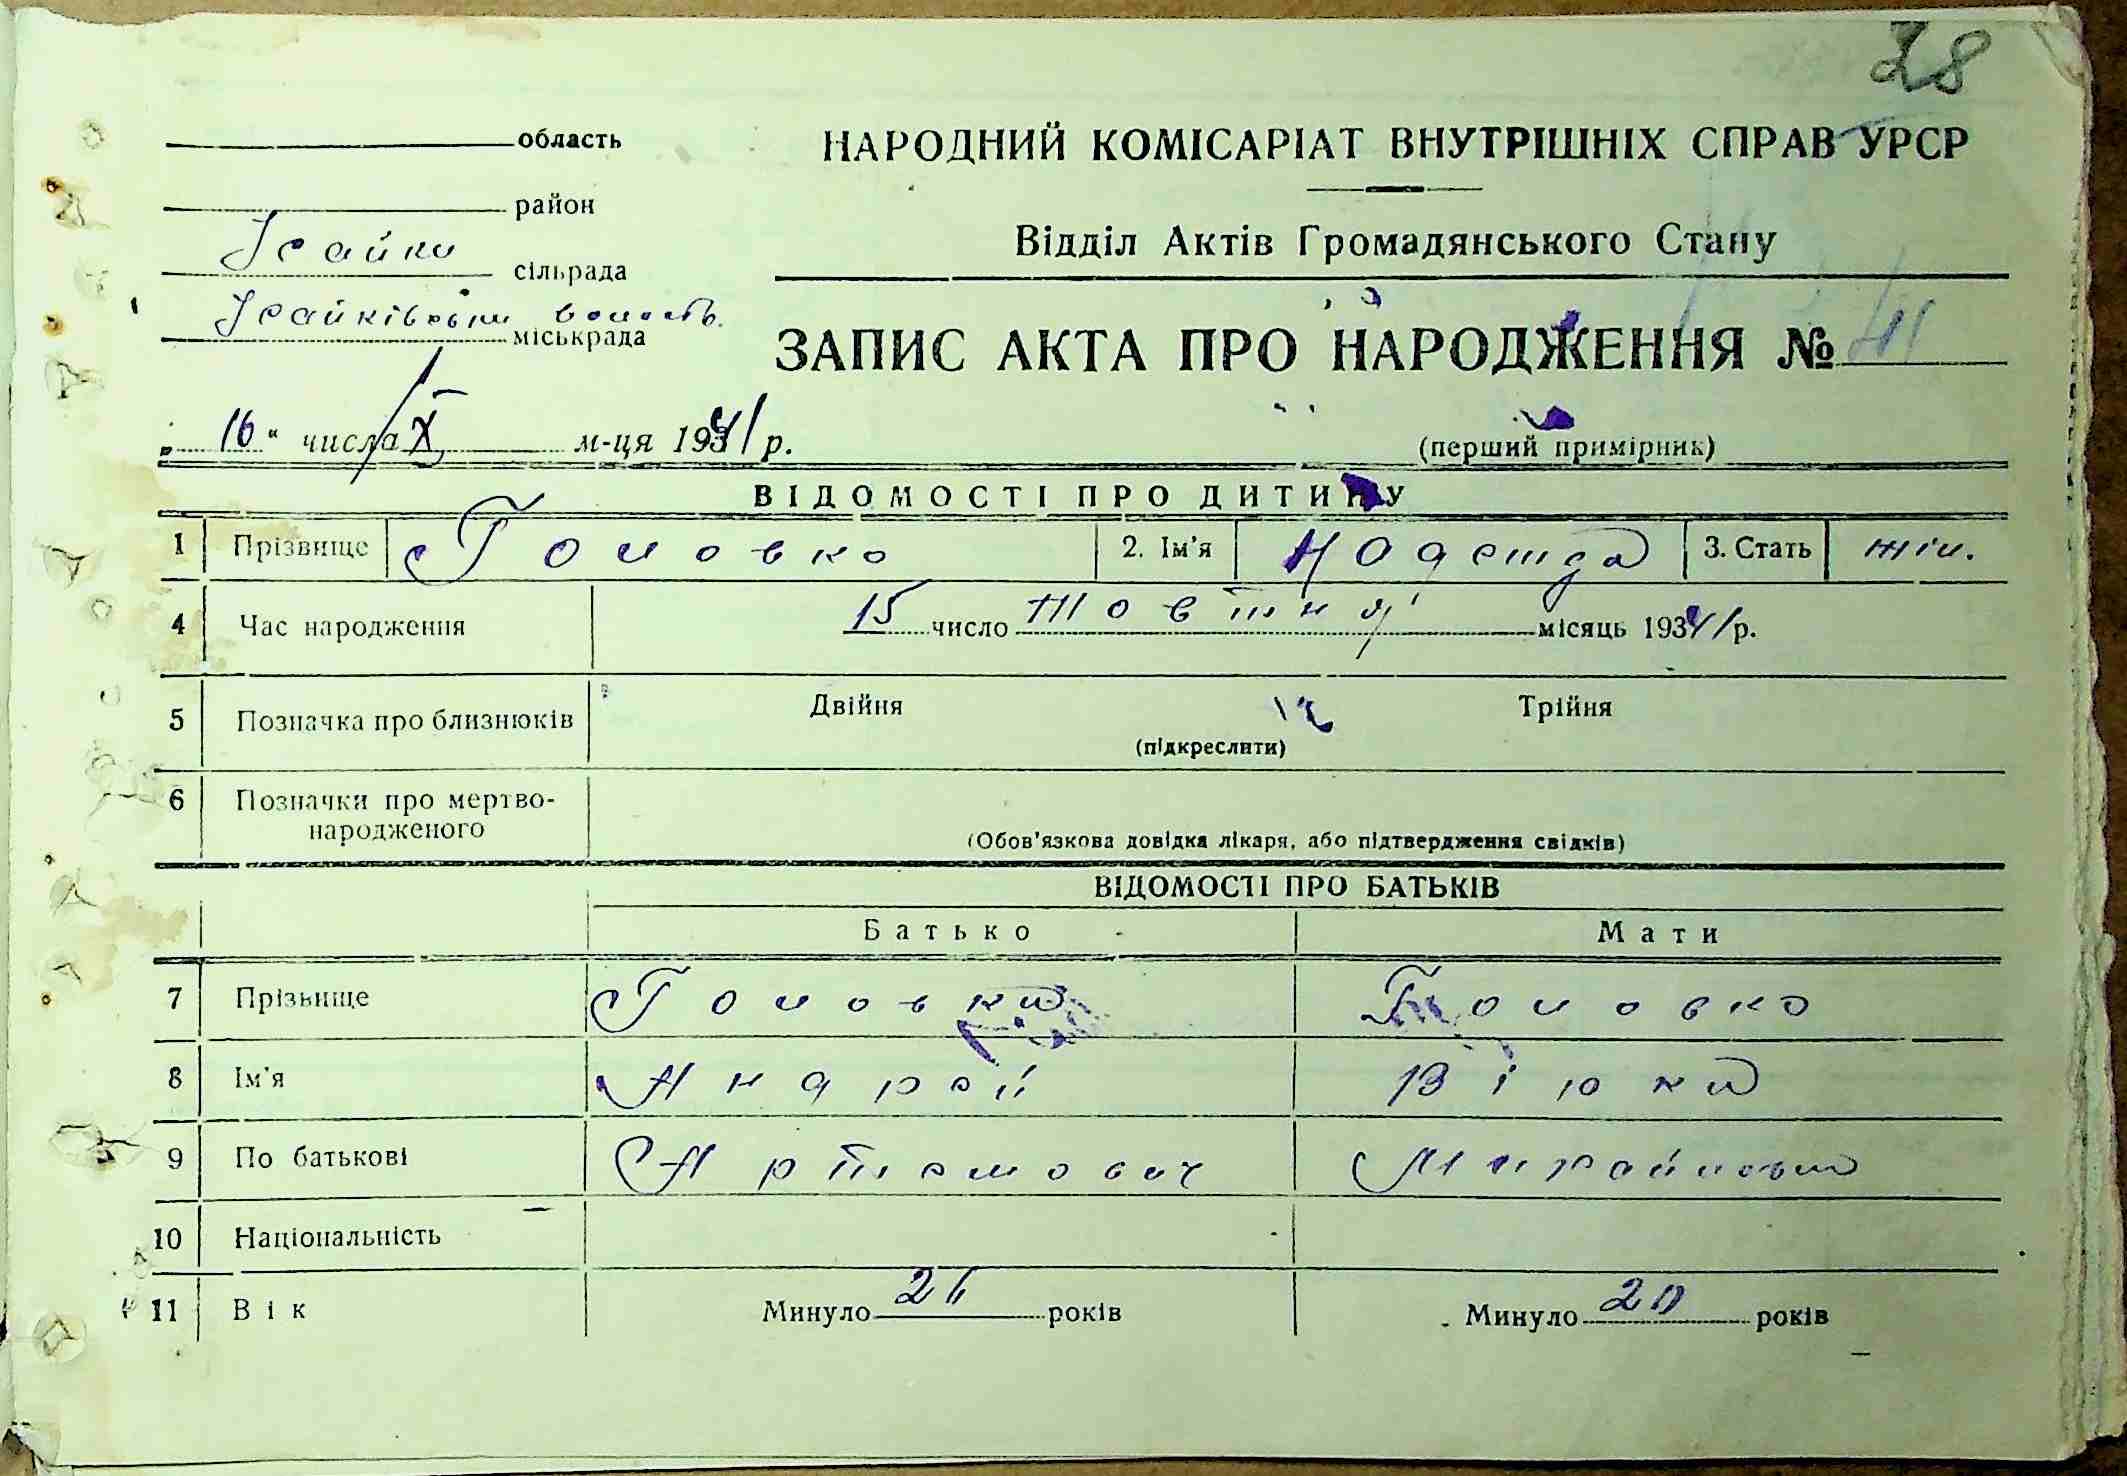 28
область
НАРОДНИЙ КОМІСАРІАТ ВНУТРІШНІХ СПРАВ УРСР
район
Відділ Актів Громадянського Стану
Ісайки сільрада
Ісайківська волость міськрада
ЗАПИС АКТА ПРО НАРОДЖЕННЯ №
„16“ числа X м-ця 1941 р.
(перший примірник)
ВІДОМОСТІ ПРО ДИТИНУ
1 Прізвище Головко 2. Ім'я Надежда 3. Стать жін.
4 Час народження 15 число Жовтня місяць 1941 р.
5 Позначка про близнюків Двійня Трійня
(підкреслити)
6 Позначки про мертво-
народженого
(Обов'язкова довідка лікаря, або підтвердження свідків)
ВІДОМОСТІ ПРО БАТЬКІВ
Батько Мати
7 Прізвище Головко Головко
8 Ім'я Андрей
9 По батькові Артемович
10 Національність
11 Вік Минуло 26 років Минуло 20 років